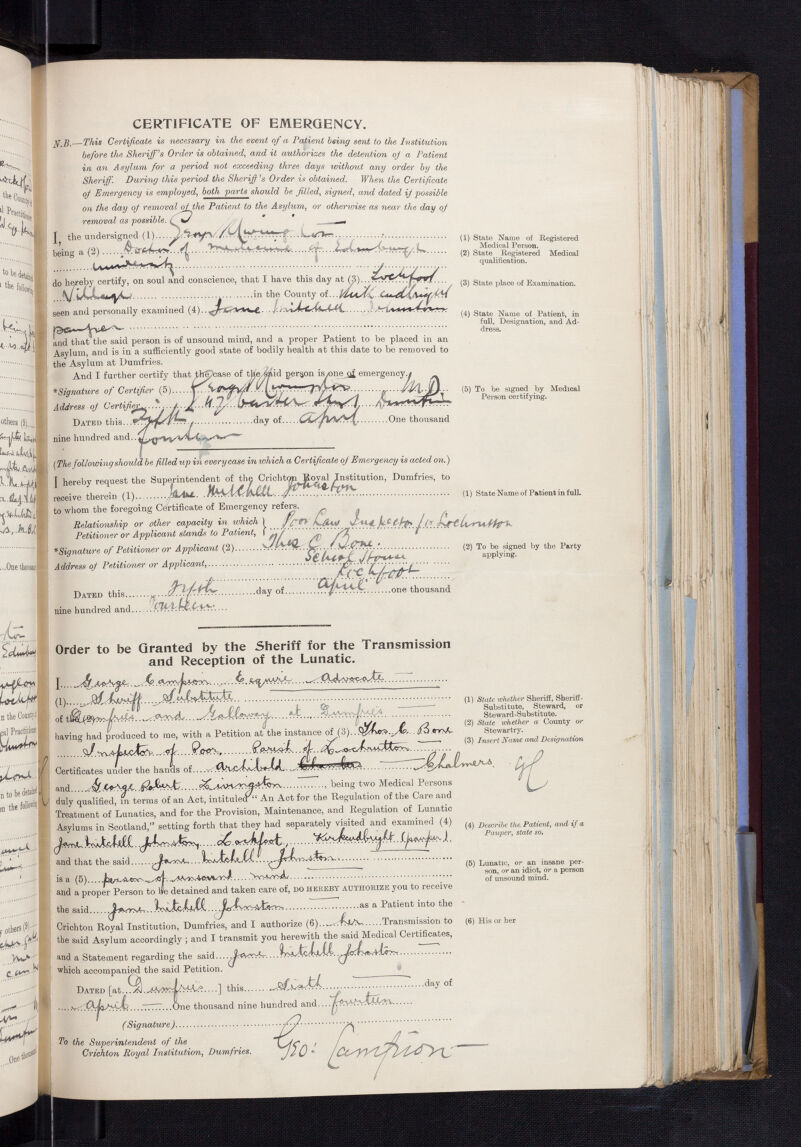 CERTIFICATE OF EMERGENCY.
N.B.—This Certificate is necessary in the event of a Patient being sent to the Institution
before the Sheriff's Order is obtained, and it authorizes the detention of a Patient
in an Asylum for a period not exceeding three days without any order by the
Sheriff. During this period the Sheriff's Order is obtained. When the Certificate
of Emergency is employed, both parts should be filled, signed, and dated if possible
on the day of removal of the Patient to the Asylum, or otherwise as near the day of
removal as possible.
I, the undersigned (1) George R Livingston
being a (2) Doctor of medicine of Edinburgh
University
do hereby certify, on soul and conscience, that I have this day at (3) Lochfoot
Village in the County of Kirkcudbright
seen and personally examined (4) Jane Mitchell Johnston
pauper
and that the said person is of unsound mind, and a proper Patient to be placed in an
Asylum, and is in a sufficiently good state of bodily health at this date to be removed to
the Asylum at Dumfries.
And I further certify that the case of the said person is one of emergency.
*Signature of Certifier (5) George R Livingston M.D.
Address of Certifier 47 Dumfries
DATED this Fifth day of April One thousand
nine hundred and fourteen
(The following should be filled up in every case in which a Certificate of Emergency is acted on.)
I hereby request the Superintendent of the Crichton Royal Institution, Dumfries, to
receive therein (1) Jane Mitchell Johnston
to whom the foregoing Certificate of Emergency refers.
Relationship or other capacity in which Petitioner or Applicant stands to Patient, Poor Law Inspector for Lochrutton
*Signature of Petitioner or Applicant (2) Thos C. Bone.
Address of Petitioner or Applicant, School House
Lochfoot
DATED this Fifth day of April one thousand
nine hundred and Fourteen
Order to be Granted by the Sheriff for the Transmission
and Reception of the Lunatic.
I George Campion Esquire Advocate
(1) Sheriff Substitute
of the Dumfries and Galloway at Dumfries
having had produced to me, with a Petition at the instance of (3) Thos. C. Bone
Inspector of Poor, Parish of Lochrutton
Certificates under the hands of Archibald Chalmers
and George Robert Livingston, being two Medical Persons
duly qualified, in terms of an Act, intituled "An Act for the Regulation of the Care and
Treatment of Lunatics, and for the Provision, Maintenance, and Regulation of Lunatic
Asylums in Scotland," setting forth that they had separately visited and examined (4)
Jane Mitchell Johnston, Lochfoot, Kirkcudbright (pauper)
and that the said Jane Mitchell Johnston
is a (5) person of unsound mind
and a proper Person to be detained and taken care of, DO HEREBY AUTHORIZE you to receive
the said Jane Mitchell Johnston as a Patient into the
Crichton Royal Institution, Dumfries, and I authorize (6) her Transmission to
the said Asylum accordingly; and I transmit you herewith the said Medical Certificates,
and a Statement regarding the said Jane Mitchell Johnston
which accompanied the said Petition.
DATED [at Dumfries ] this Sixth day of
April One thousand nine hundred and fourteen
(Signature)
Geo: Campion
To the Superintendent of the
Crichton Royal Institution, Dumfries.
(1) State Name of Registered
Medical Person.
(2) State Registered Medical
qualification.
(3) State place of Examination.
(4) State Name of Patient, in
full, Designation, and Ad-
dress.
(5) To be signed by Medical
Person certifying.
(1) State Name of Patient in full.
(2) To be signed by the Party
applying.
(1) State whether Sheriff, Sheriff-
Substitute, Steward, or
Steward-Substitute.
(2) State whether a County or
Stewartry.
(3) Insert Name and Designation
(4) Describe the Patient, and if a
Pauper, state so.
(5) Lunatic, or an insane per-
son, or an idiot, or a person
of unsound mind.
(6) His or her